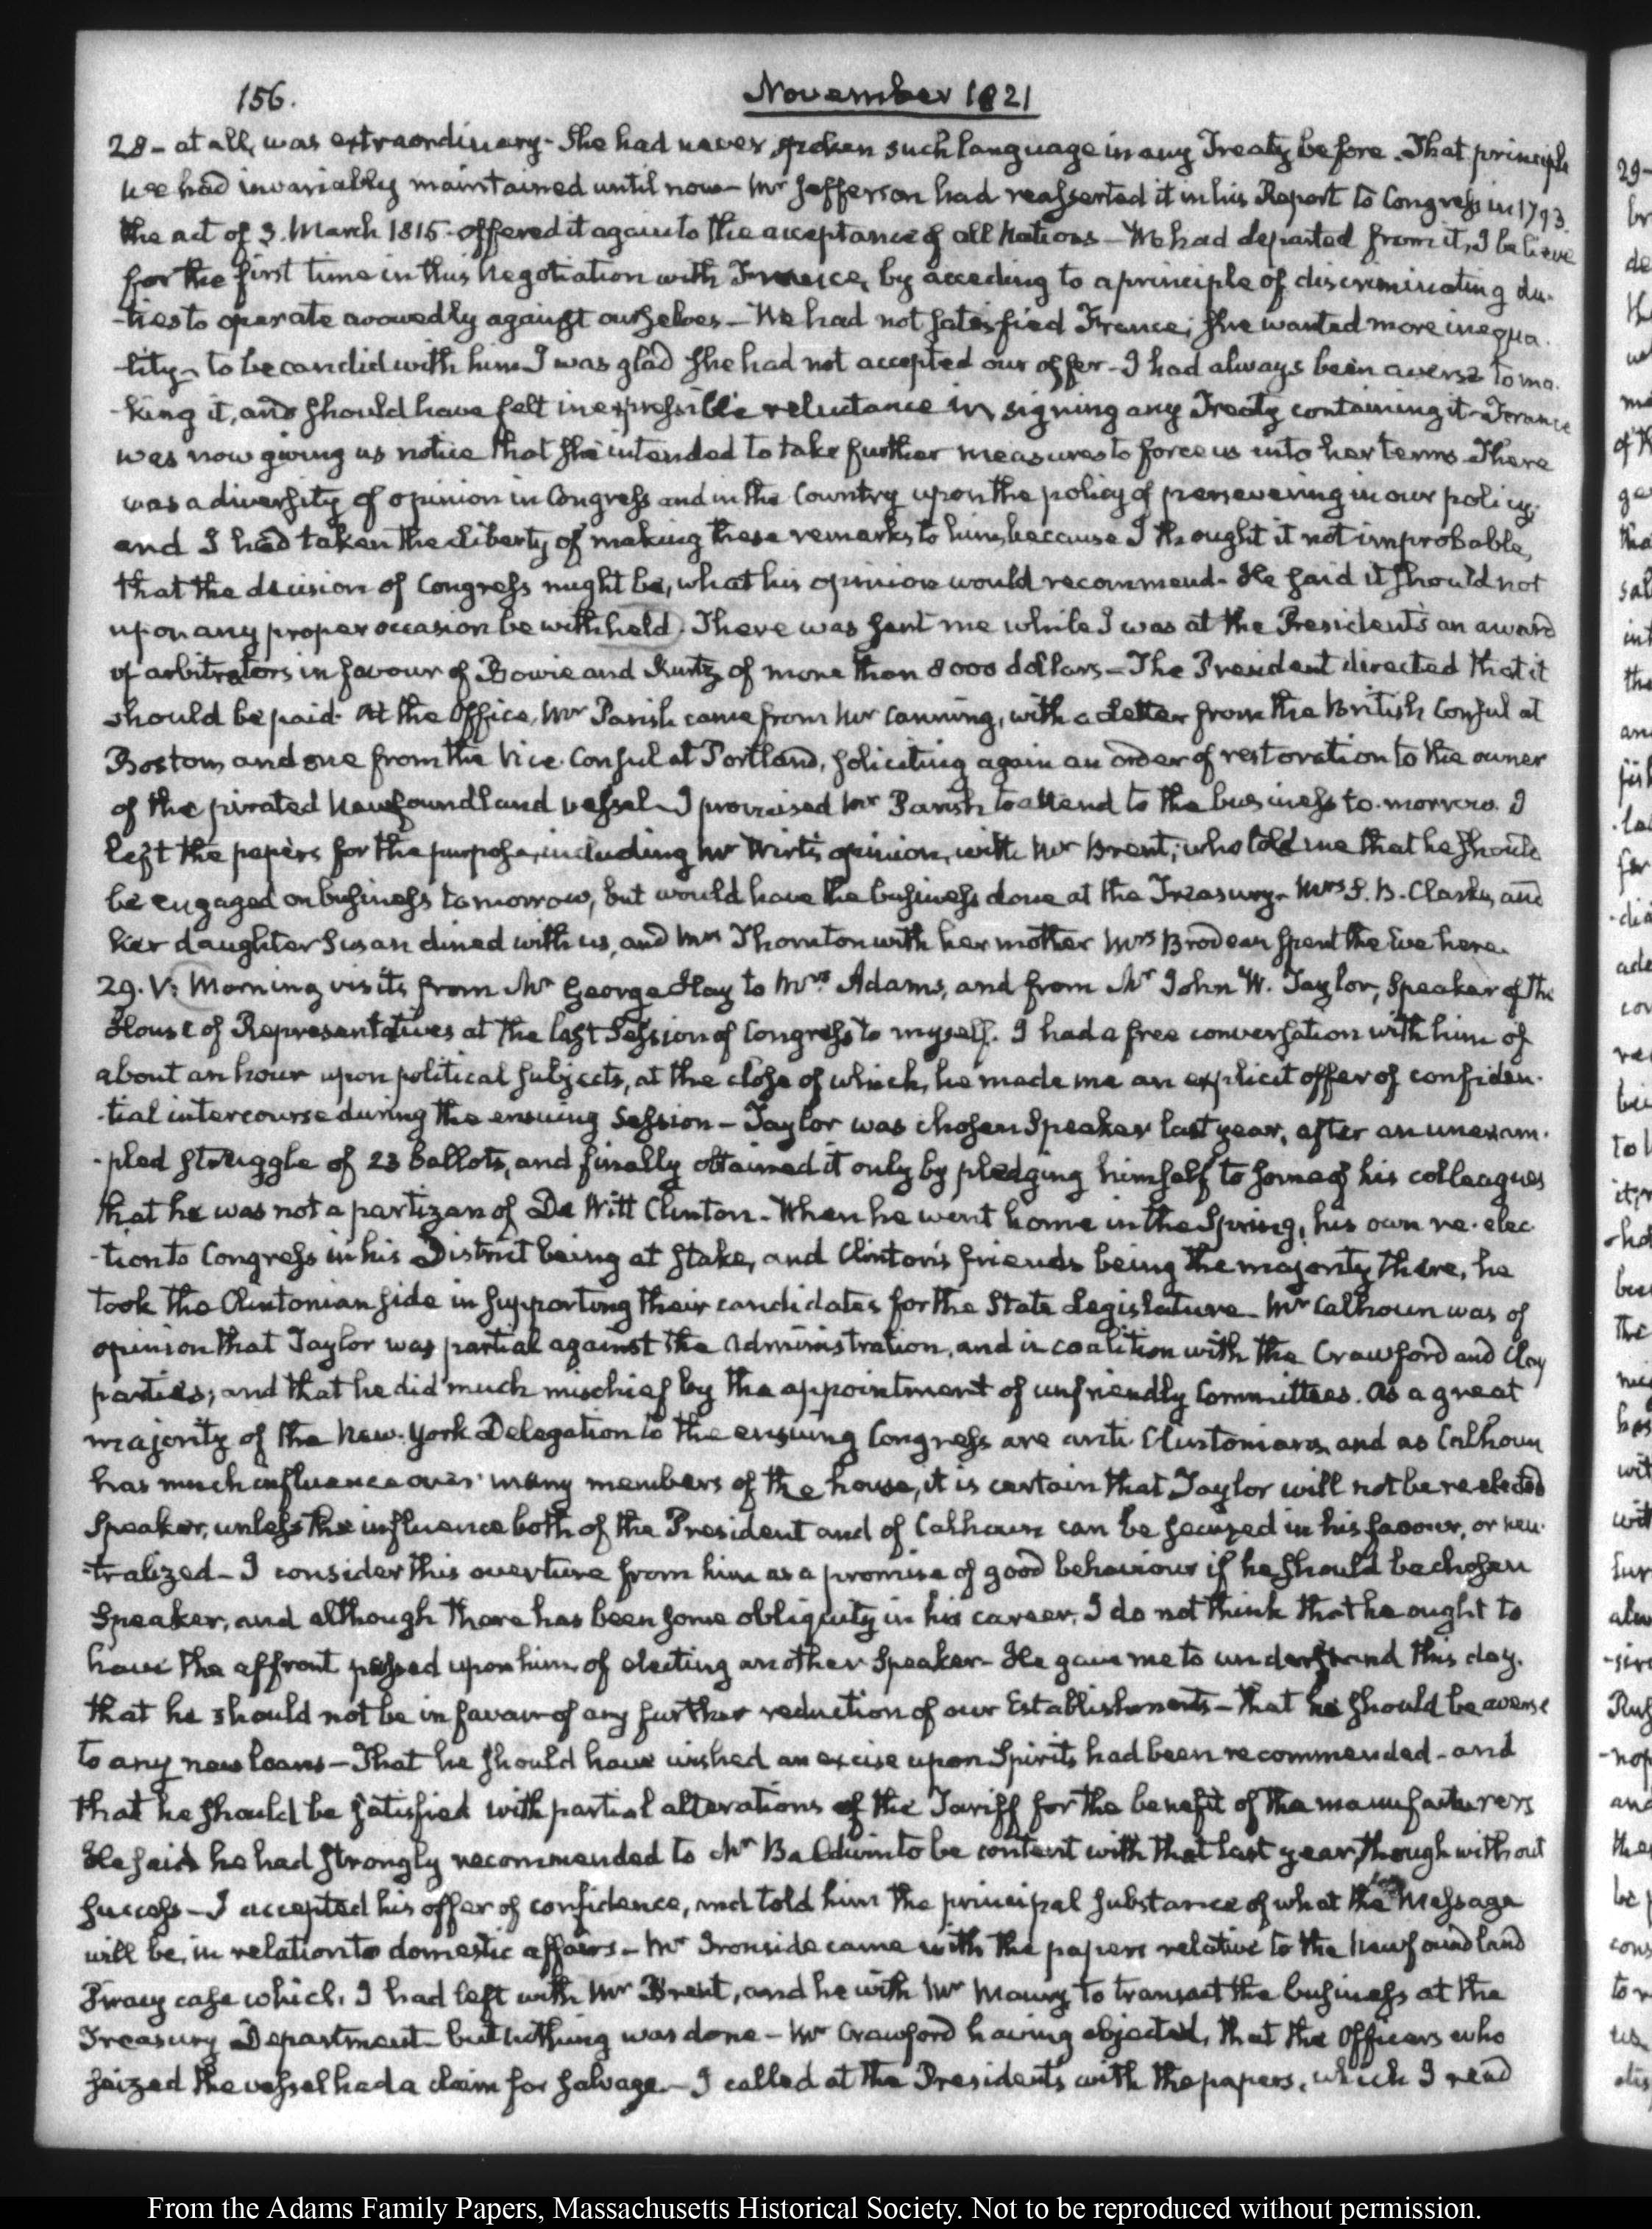 156.
November 1821
28 - at all, was extraordinary - She had never spoken such language in any Treaty before. That principle
we had invariably maintained until now - Mr Jefferson had reasserted it in his Report to Congress in 1793.
the act of 3. March 1815. offered it again to the acceptance of all Nations - We had departed from it, I believe
for the first time in this Negotiation with France, by acceding to a principle of discriminating du-
-ties to operate avowedly against ourselves - We had not satisfied France; she wanted more inequa-
-lity - to be candid with him I was glad she had not accepted our offer - I had always been averse to ma-
-king it, and should have felt inexpressible reluctance in signing any Treaty containing it - France
was now giving us notice that she intended to take further measures to force us into her terms - There
was a diversity of opinion in Congress and in the Country upon the policy of persevering in our policy;
and I had taken the liberty of making these remarks to him, because I thought it not improbable,
that the decision of Congress might be, what his opinion would recommend - He said it should not
upon any proper occasion be withheld. There was sent me while I was at the President's an award
of arbitrators in favour of Bowie and Kurtz, of more than 8000 dollars - The President directed that it
should be paid. At the Office, Mr Parish came from Mr Canning, with a Letter from the British Consul at
Boston, and one from the Vice-Consul at Portland, soliciting again an order of restoration to the owner
of the pirated Newfoundland vessel - I promised Mr Parish to attend to the business to-morrow. I
left the papers for the purpose, including Mr Wirt's opinion, with Mr Brent; who told me that he should
be engaged on business tomorrow, but would have the business done at the Treasury - Mrs S. B. Clark, and
her daughter Susan dined with us, and Mrs Thornton with her mother Mrs Brodeau spent the Eve here.
29. V: Morning visits from Mr George Hay to Mrs Adams, and from Mr John W. Taylor, Speaker of the
House of Representatives at the last Session of Congress to myself. I had a free conversation with him of
about an hour upon political subjects, at the close of which, he made me an explicit offer of confiden-
-tial intercourse during the ensuing Session - Taylor was chosen Speaker last year, after an unexam-
-pled struggle of 23 ballots, and finally obtained it only by pledging himself to some of his colleagues
that he was not a partizan of De Witt Clinton - When he went home in the Spring, his own re-elec-
-tion to Congress in his District being at stake, and Clinton's friends being the majority there, he
took the Clintonian side in supporting their candidates for the State Legislature - Mr Calhoun was of
opinion that Taylor was partial against the Administration, and in coalition with the Crawford and Clay
parties; and that he did much mischief by the appointment of unfriendly Committees. As a great
majority of the New-York Delegation to the ensuing Congress are anti Clintonians, and as Calhoun
has much influence over many members of the house, it is certain that Taylor will not be re-elected
Speaker, unless the influence both of the President and of Calhoun can be secured in his favour, or neu-
-tralized - I consider this overture from him as a promise of good behaviour if he should be chosen
Speaker, and although there has been some obliquity in his career, I do not think that he ought to
have the affront passed upon him, of electing another Speaker - He gave me to understand this day.
that he should not be in favour of any further reduction of our Establishments - that he should be averse
to any new loans - That he should have wished an excise upon Spirits had been recommended - and
that he should be satisfied with partial alterations of the Tariff for the benefit of the manufacturers
He said he had strongly recommended to Mr Baldwin to be content with that last year, though without
success - I accepted his offer of confidence, and told him the principal substance of what the Message
will be, in relation to domestic affairs - Mr Ironside came with the papers relative to the Newfoundland
Piracy case which I had left with Mr Brent, and he with Mr Maury to transact the business at the
Treasury Department - but nothing was done - Mr Crawford having objected, that the Officers who
seized the vessel had a claim for salvage - I called at the President's with the papers, which I read
From the Adams Family Papers, Massachusetts Historical Society. Not to be reproduced without permission.